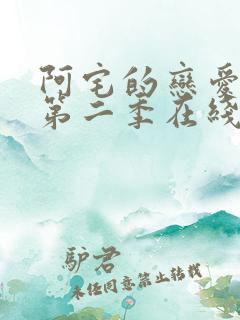 阿宅的戀愛
第二季在綫
驴君
未经同意禁止转载